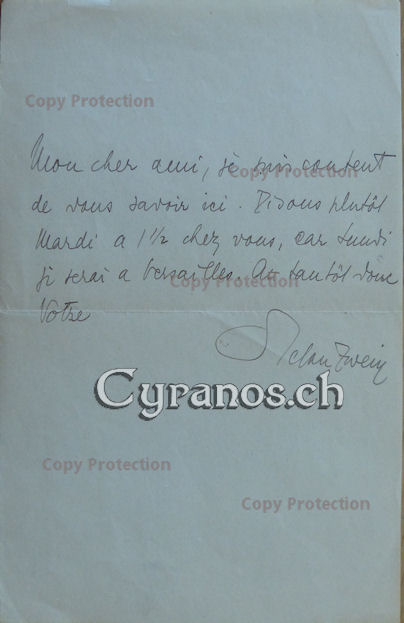 Copy Protection
Mon cher ami, je suis content
Copy Protection
de vous savoir ici. Disons plutôt
Mardi a 1½ chez vous, car Lundi
je serai a Versailles. Au tantôt donc
Copy Protection
Votre
Copy Protection
Stefan Zweig
Cyranos.ch
Copy Protection
Copy Protection